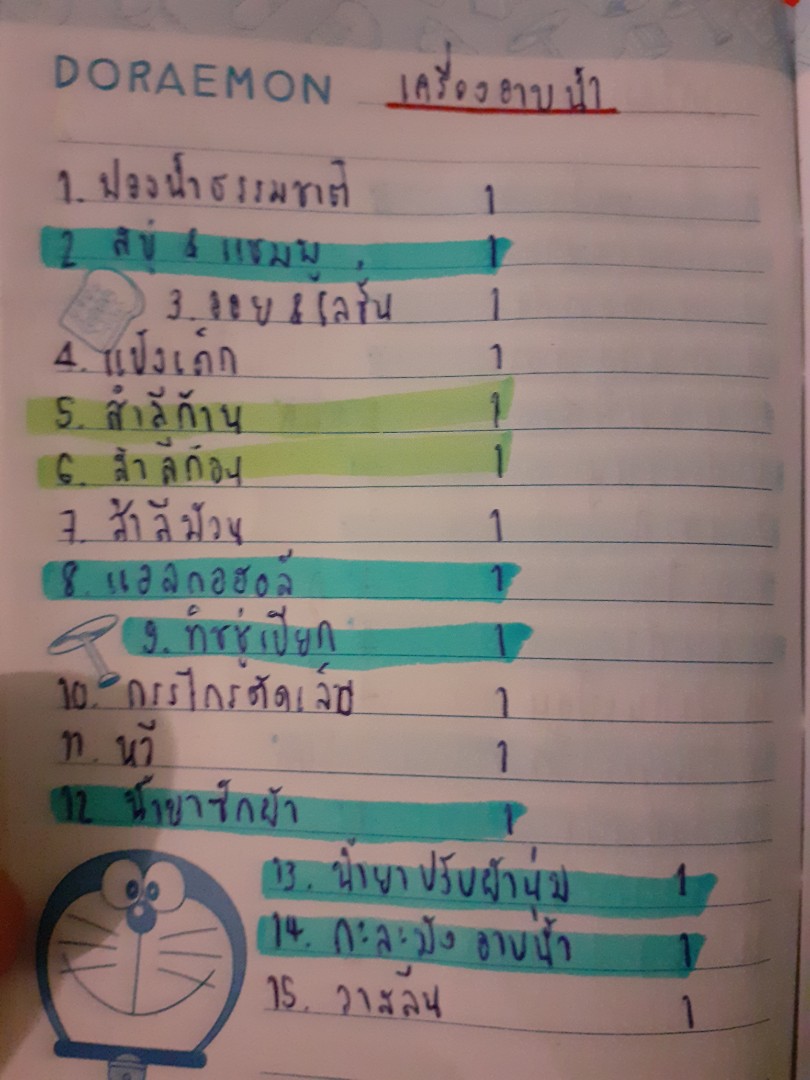 DORAEMON เครื่องอาบน้ำ
1. ฟองน้ำธรรมชาติ 1
2 สบู่ & แชมพู 1
3. ออย & โลชั่น 1
4. แป้งเด็ก 1
5. สำลีก้าน 1
6. สำลีก้อน 1
7. สำลีม้วน 1
8. แอลกอฮอล์ 1
9. ทิชชู่เปียก 1
10. กรรไกรตัดเล็บ 1
11. หวี 1
12 น้ำยาซักผ้า 1
13. น้ำยาปรับผ้านุ่ม 1
14. กะละมัง อาบน้ำ 1
15. วาสลีน 1